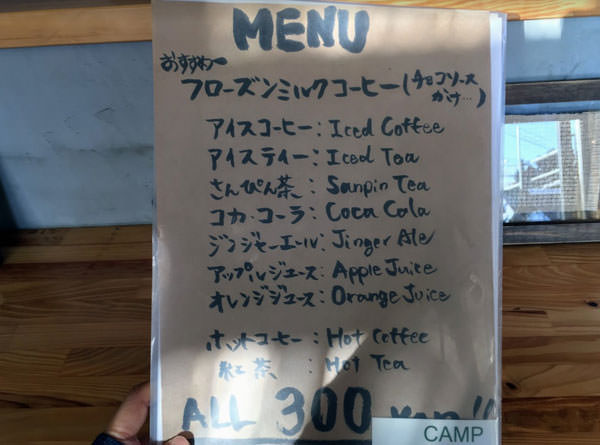 MENU
おすすめ〜
フローズンミルクコーヒー(チョコソース
かけ…)
アイスコーヒー:Iced Coffee
アイスティー:Iced Tea
さんぴん茶:Sanpin Tea
コカ・コーラ:Coca Cola
ジンジャーエール:Jinger Ale
アップルジュース:Apple Juice
オレンジジュース:Orange Juice
ホットコーヒー:Hot Coffee
紅茶:Hot Tea
ALL 300 yen!!
CAMP